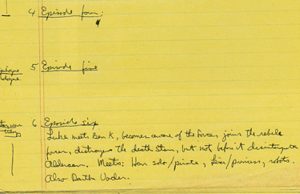 4 Episode four:
5 Episode five
6 Episode six
Luke meets Ben K, becomes aware of the force, joins the rebels
forces, distroys the death star, but not before it disintegrates
Alderaan. Meets: Han solo/pirate, Leia/princess, robots.
Also Darth Vader.